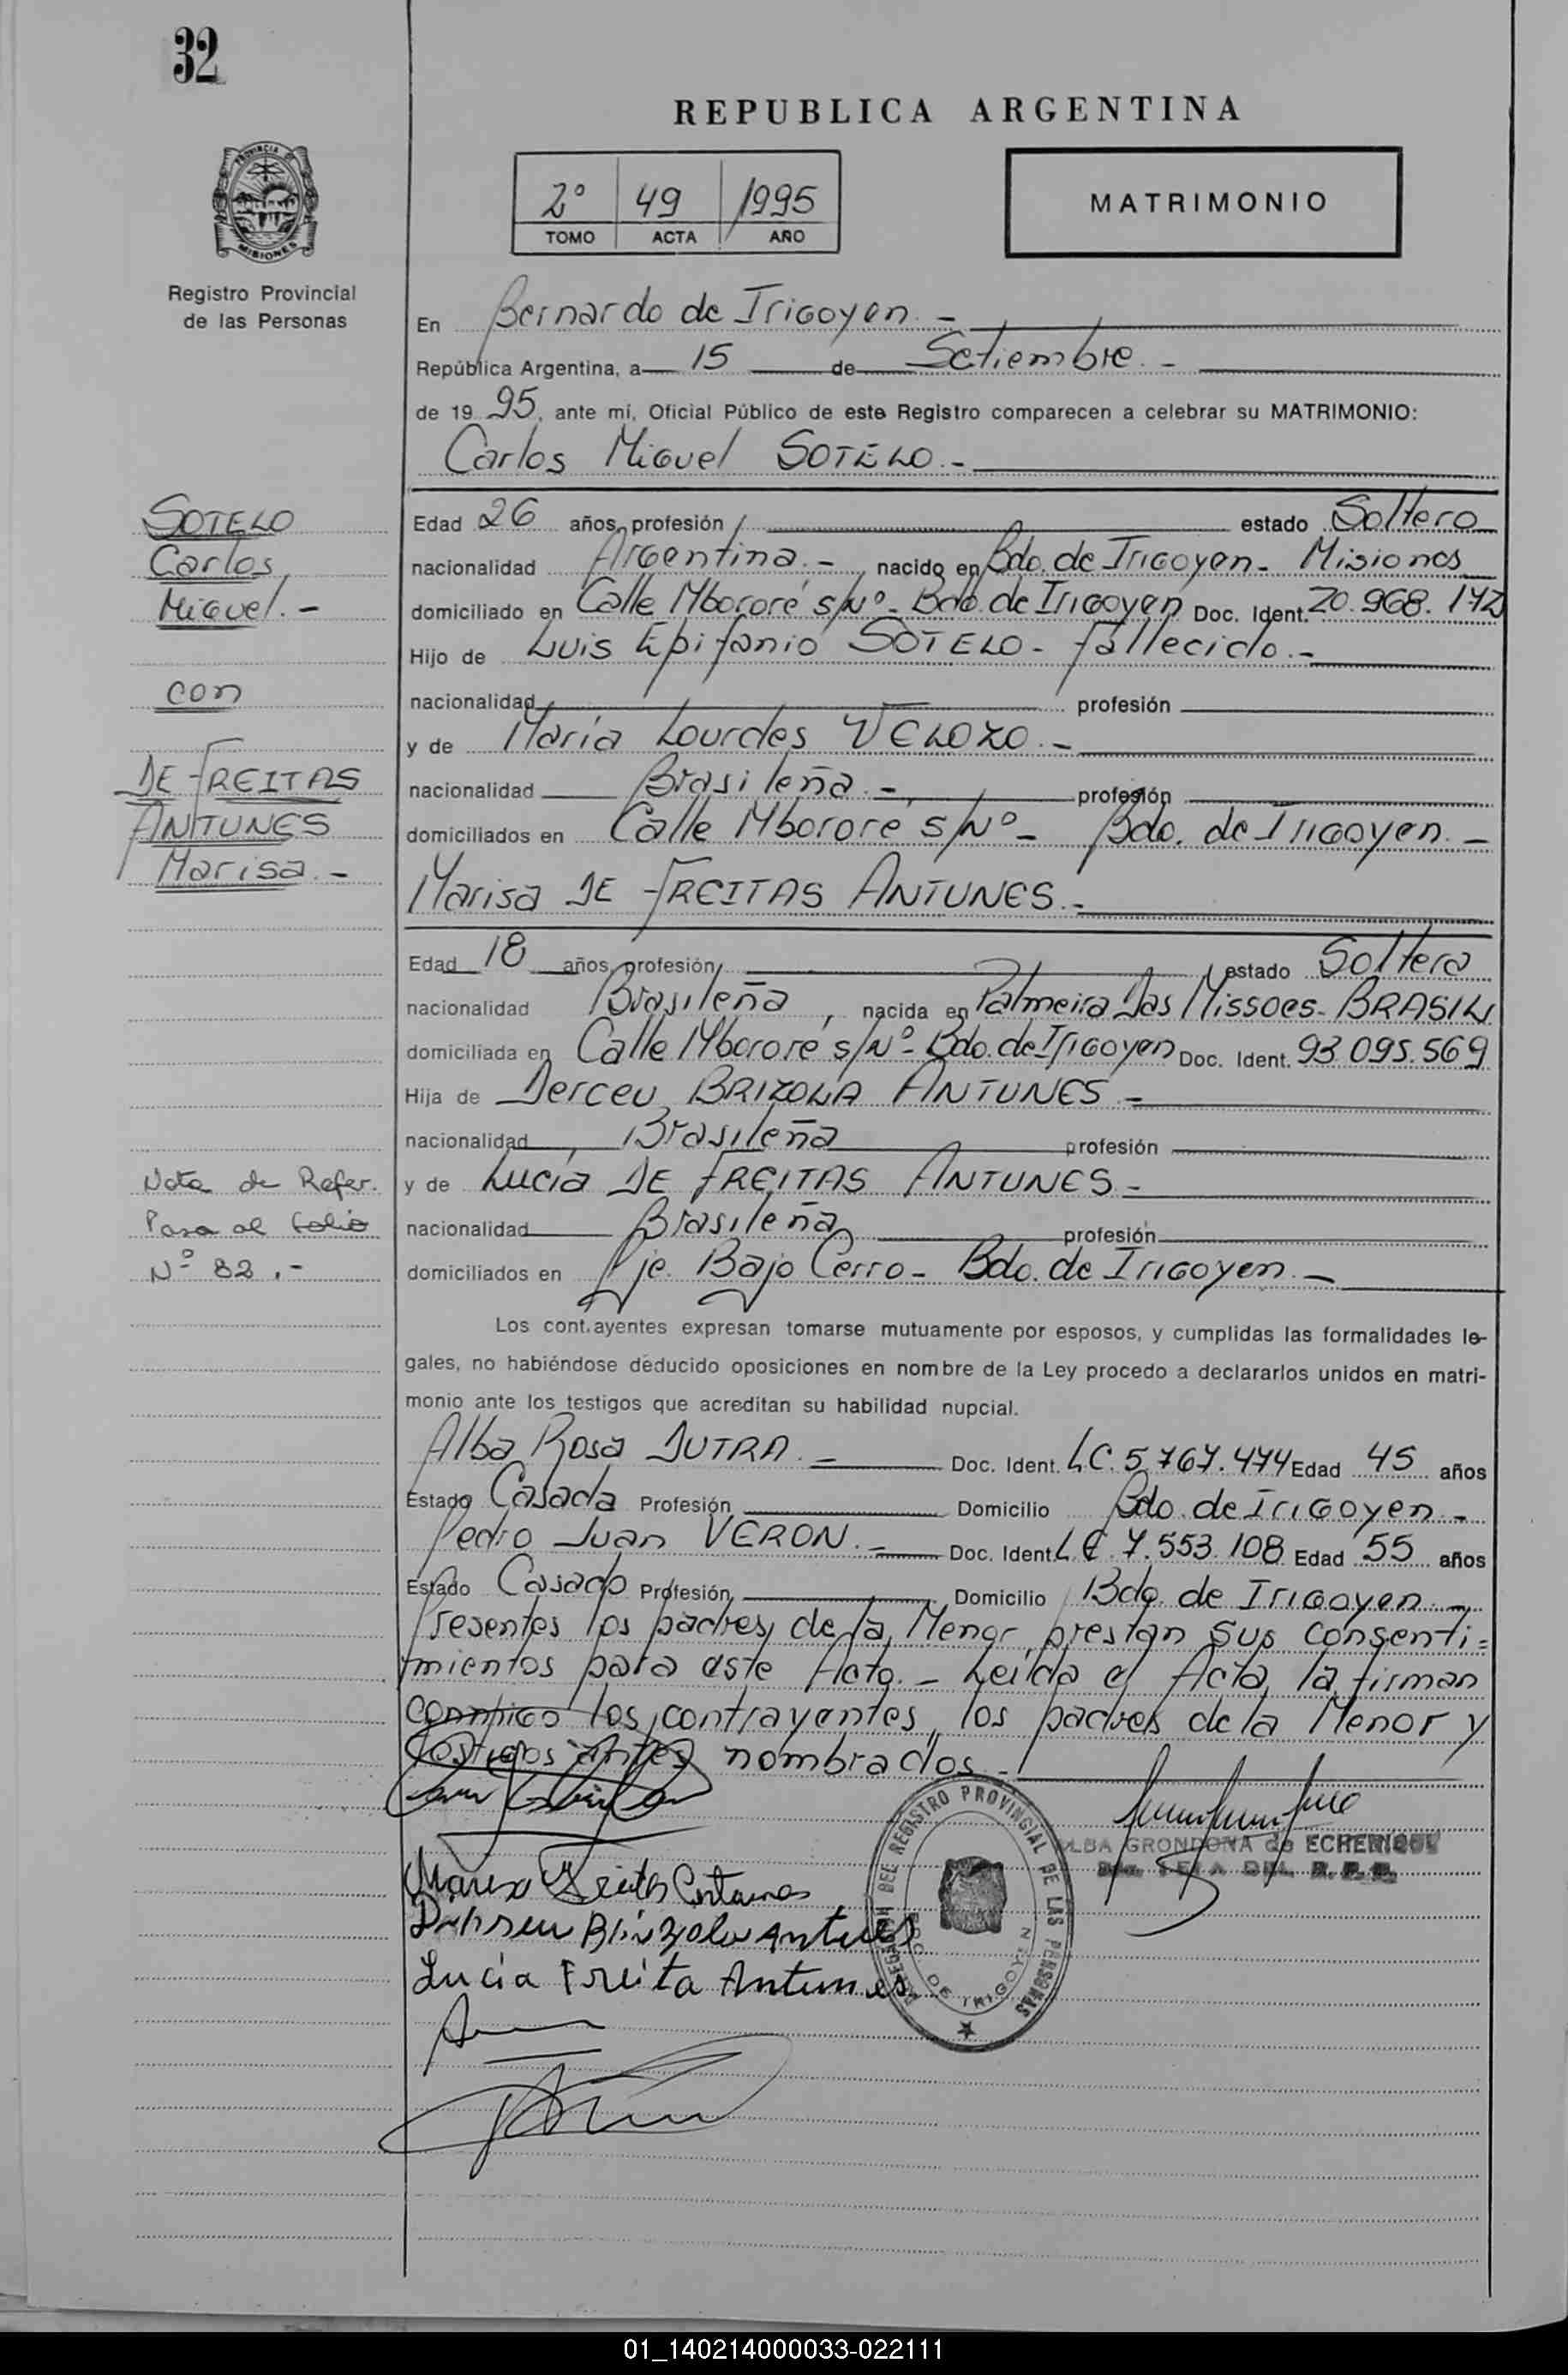 32
REPUBLICA ARGENTINA
PROVINCIA DE
MISIONES
Registro Provincial
de las Personas
2º 49 1995
TOMO ACTA AÑO
MATRIMONIO
En Bernardo de Irigoyen.-
República Argentina, a 15 de Setiembre.-
de 19 95, ante mí, Oficial Público de este Registro comparecen a celebrar su MATRIMONIO:
Carlos Miguel SOTELO.-
SOTELO
Carlos
Miguel.-
con
DE FREITAS
ANTUNES
Marisa.-
Nota de Refer.
Pasa al folio
Nº 82.-
Edad 26 años, profesión estado Soltero
nacionalidad Argentina.- nacido en Bdo. de Irigoyen- Misiones
domiciliado en Calle Mbororé s/Nº- Bdo. de Irigoyen Doc. Ident. 20.968.172
Hijo de Luis Epifanio SOTELO- fallecido.-
nacionalidad profesión
y de María Lourdes VELOZO.-
nacionalidad Brasileña.- profesión
domiciliados en Calle Mbororé s/Nº- Bdo. de Irigoyen.-
Marisa DE FREITAS ANTUNES.-
Edad 18 años, profesión estado Soltera
nacionalidad Brasileña, nacida en Palmeira Das Missoes- BRASIL
domiciliada en Calle Mbororé s/Nº- Bdo. de Irigoyen Doc. Ident. 93.095.569
Hija de Derceu BRIZOLA ANTUNES-
nacionalidad Brasileña profesión
y de Lucía DE FREITAS ANTUNES-
nacionalidad Brasileña profesión
domiciliados en Pje. Bajo Cerro- Bdo. de Irigoyen.-
Los cont.ayentes expresan tomarse mutuamente por esposos, y cumplidas las formalidades le-
gales, no habiéndose deducido oposiciones en nombre de la Ley procedo a declararlos unidos en matri-
monio ante los testigos que acreditan su habilidad nupcial.
Alba Rosa DUTRA.- Doc. Ident. LC. 5.767.474 Edad 45 años
Estado Casada Profesión Domicilio Bdo. de Irigoyen-
Pedro Juan VERON.- Doc. Ident. LE. 7.553.108 Edad 55 años
Estado Casado Profesión Domicilio Bdo. de Irigoyen.-
Presentes los padres de la Menor, prestan sus consenti=
mientos para este Acto.- Leída el Acta, la firman
conmigo los contrayentes, los padres de la Menor y
testigos antes nombrados.-
ALBA GRONDONA de ECHERIQUE
DELEGACION DEL REGISTRO PROVINCIAL DE LAS PERSONAS
BDO. DE IRIGOYEN
Lucia Freita Antunes
01_140214000033-022111